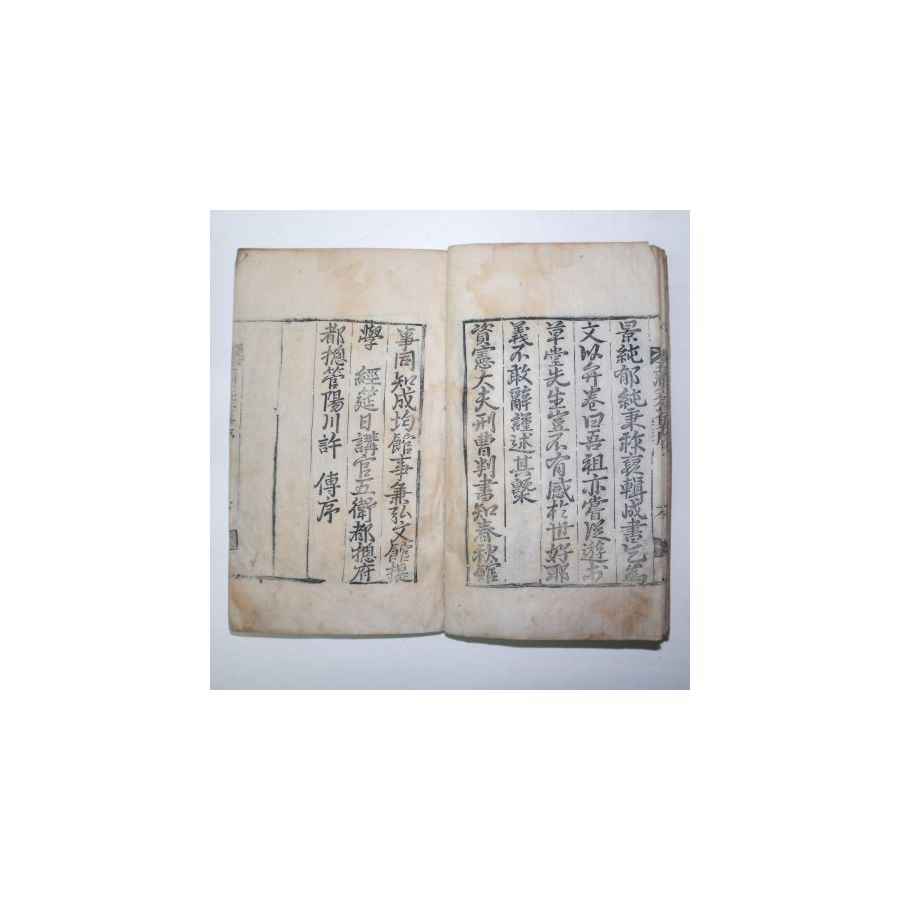 景純郁純秉 裒輯成書乞爲
文以弁卷曰吾祖亦嘗從遊於
草堂先生豈不有感於世好耶
義不敢辭謹述其槩
資憲大夫刑曹判書知春秋館
事同知成均館事兼弘文館提
學 經筵日講官五衛都摠府
都摠管陽川許 傳序